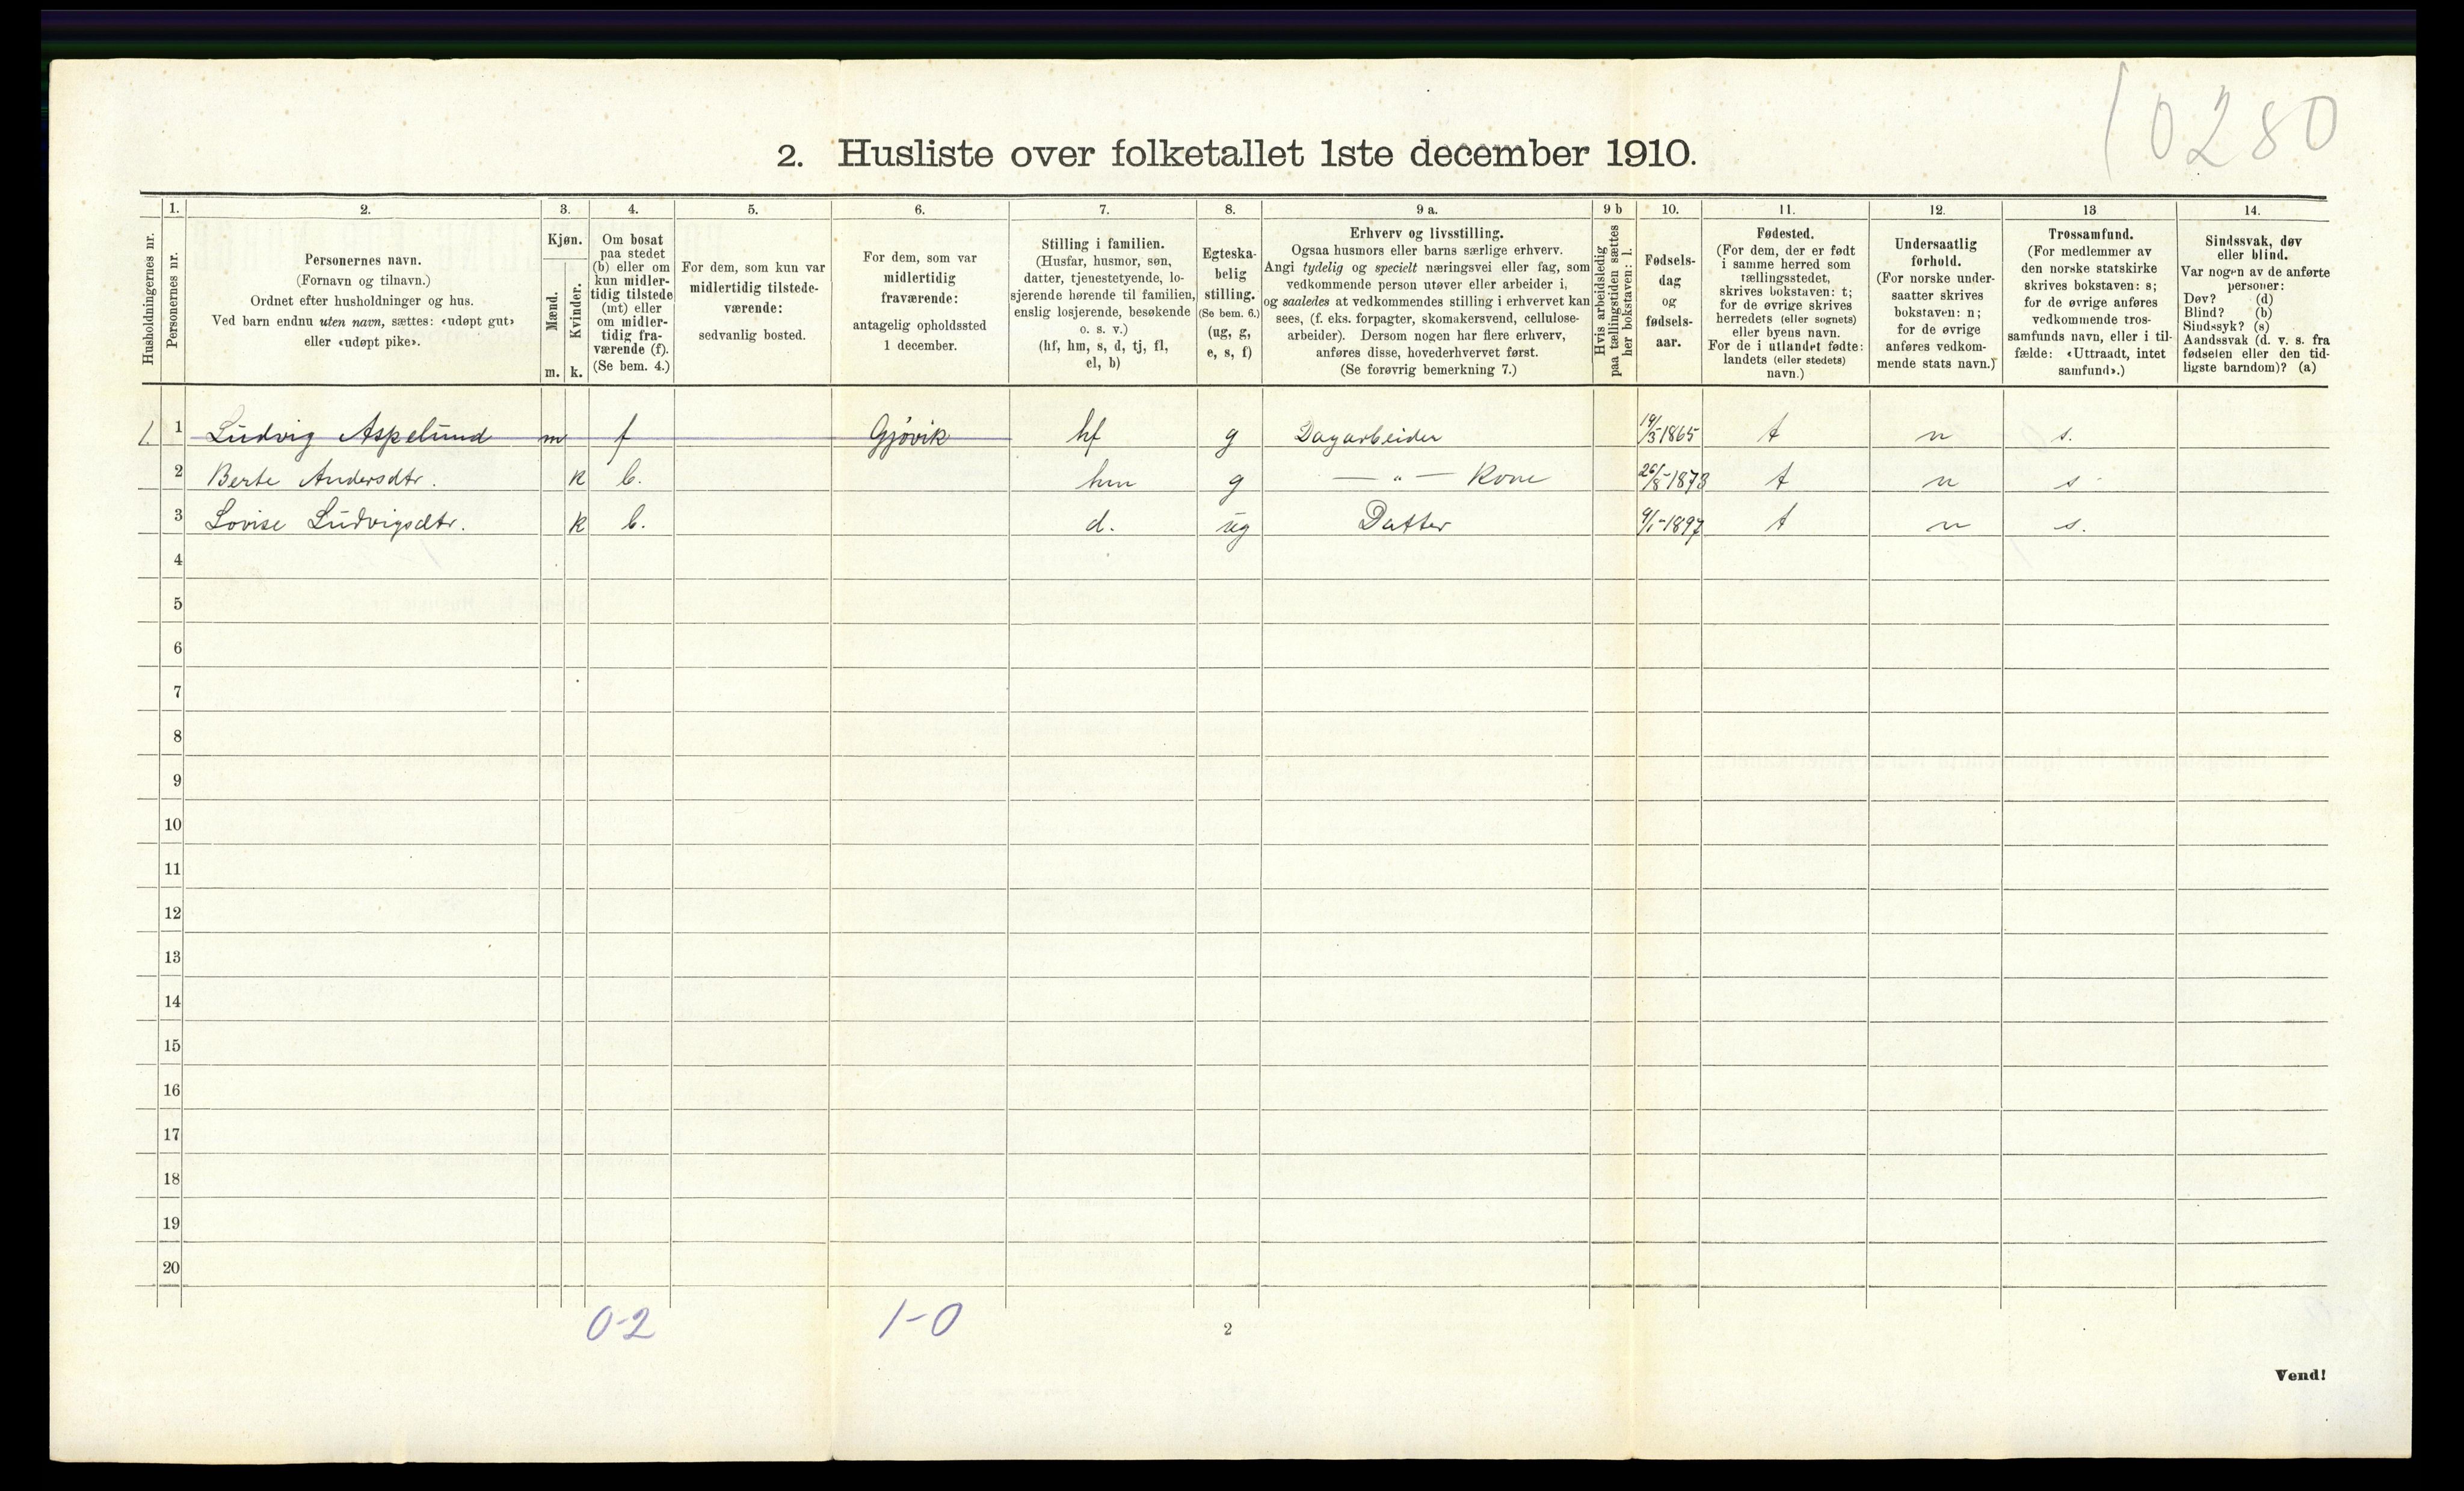 10280
2. Husliste over folketallet 1ste december 1910.
Husholdningernes nr.
1.
Personernes nr.
2.
Personernes navn.
(Fornavn og tilnavn.)
Ordnet efter husholdninger og hus.
Ved barn endnu uten navn, sættes: «udøpt gut»
eller «udøpt pike».
3.
Kjøn.
Mænd.
Kvinder.
m. k.
4.
Om bosat
paa stedet
(b) eller om
kun midler-
tidig tilstede
(mt) eller
om midler-
tidig fra-
værende (f).
(Se bem. 4.)
5.
For dem, som kun var
midlertidig tilstede-
værende:
sedvanlig bosted.
6.
For dem, som var
midlertidig
fraværende:
antagelig opholdssted
1 december.
7.
Stilling i familien.
(Husfar, husmor, søn,
datter, tjenestetyende, lo-
sjerende hørende til familien,
enslig losjerende, besøkende
o. s. v.)
(hf, hm, s, d, tj, fl,
el, b)
8.
Egteska-
belig
stilling.
(Se bem. 6.)
(ug, g,
e, s, f)
9 a.
Erhverv og livsstilling.
Ogsaa husmors eller barns særlige erhverv.
Angi tydelig og specielt næringsvei eller fag, som
vedkommende person utøver eller arbeider i,
og saaledes at vedkommendes stilling i erhvervet kan
sees, (f. eks. forpagter, skomakersvend, cellulose-
arbeider). Dersom nogen har flere erhverv,
anføres disse, hovederhvervet først.
(Se forøvrig bemerkning 7.)
9 b
Hvis arbeidsledig
paa tællingstiden sættes
her bokstaven: l.
10.
Fødsels-
dag
og
fødsels-
aar.
11.
Fødested.
(For dem, der er født
i samme herred som
tællingsstedet,
skrives bokstaven: t;
for de øvrige skrives
herredets (eller sognets)
eller byens navn.
For de i utlandet fødte:
landets (eller stedets)
navn.)
12.
Undersaatlig
forhold.
(For norske under-
saatter skrives
bokstaven: n;
for de øvrige
anføres vedkom-
mende stats navn.)
13
Trossamfund.
(For medlemmer av
den norske statskirke
skrives bokstaven: s;
for de øvrige anføres
vedkommende tros-
samfunds navn, eller i til-
fælde: «Uttraadt, intet
samfund».)
14.
Sindssvak, døv
eller blind.
Var nogen av de anførte
personer:
Døv? (d)
Blind? (b)
Sindssyk? (s)
Aandssvak (d. v. s. fra
fødselen eller den tid-
ligste barndom)? (a)
1. 1 Ludvig Aspelund m f Gjøvik hf g Dagarbeider 19/5 1865 t n s.
2 Berte Andersdtr. k b. hm g — " — Kone 26/8-1878 t n s
3 Lovise Ludvigsdtr. k b. d. ug Datter 9/1-1897 t n s.
4
5
6
7
8
9
10
11
12
13
14
15
16
17
18
19
20
0-2 1-0
2
Vend!